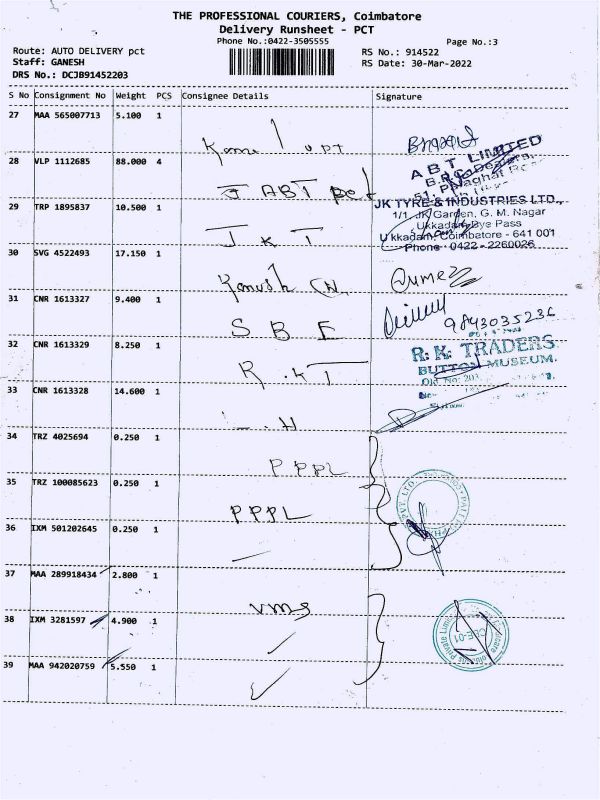 THE PROFESSIONAL COURIERS, Coimbatore
Delivery Runsheet - PCT
Phone No.:0422-3505555
Page No.:3
Route: AUTO DELIVERY pct
RS No.: 914522
Staff: GANESH
RS Date: 30-Mar-2022
DRS No.: DCJB91452203
S No Consignment No Weight PCS Consignee Details Signature
27 MAA 565007713 5.100 1
28 VLP 1112685 88.000 4
ABT LIMITED
J ABT pct
29 TRP 1895837 10.500 1
JK TYRE & INDUSTRIES LTD.,
1/1, JK Garden, G. M. Nagar
Ukkadam Bye Pass
Ukkadam, Coimbatore - 641 001
Phone : 0422-2260026
J K T
30 SVG 4522493 17.150 1
31 CNR 1613327 9.400 1
9843035236
S B E
32 CNR 1613329 8.250 1
R.K. TRADERS
BUTTON MUSEUM.
R . K T
33 CNR 1613328 14.600 1
34 TRZ 4025694 0.250 1
PPPL
35 TRZ 100085623 0.250 1
PPPL
36 IXM 501202645 0.250 1
37 MAA 289918434 2.800 1
vms
38 IXM 3281597 4.900 1
CBE-01
39 MAA 942020759 5.550 1